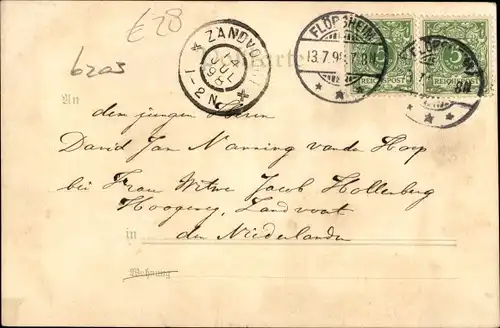 £28
6203
ZANDVOORT
14 JUL 98
1-2 N
FLÖRSHEIM
13.7.98. 7-8N
FLÖRSHEIM
8N
5 REICHSPOST
5 REICHSPOST
Postkarte
An
den jungen Herrn
David Jan Nanning van de Hoop
bei Frau Witwe Jacob Hollenberg
Hoogeweg, Zandvoort
in den Niederlanden
Wohnung